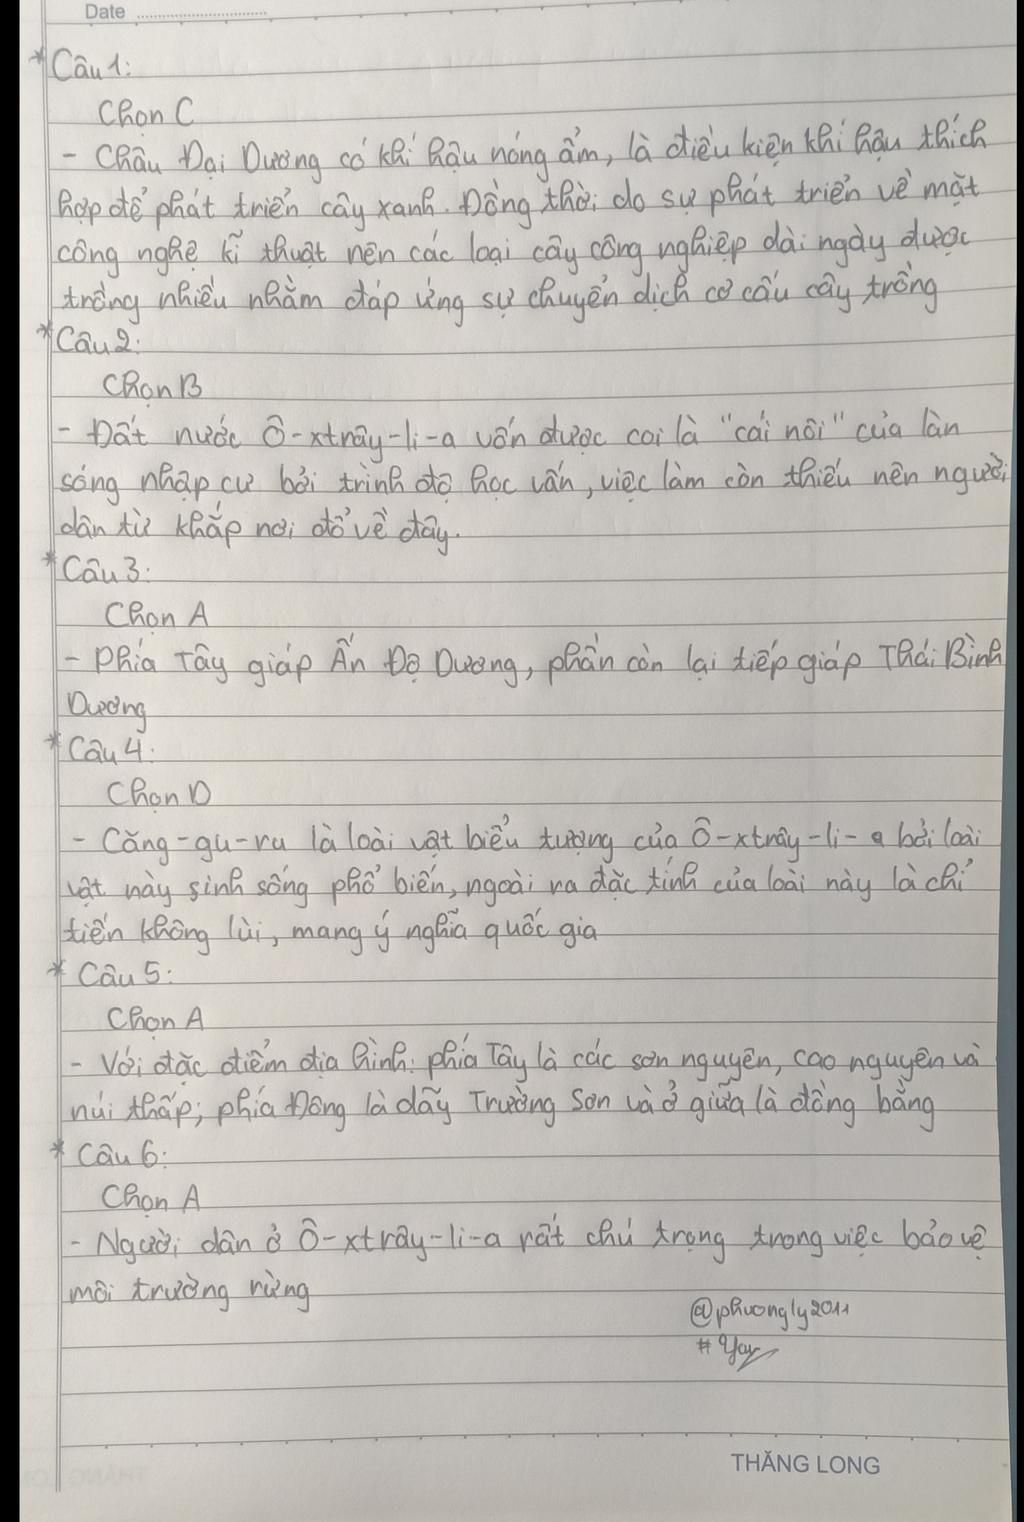 Date
* Câu 1:
Chọn C
- Châu Đại Dương có khí hậu nóng ẩm, là điều kiện khí hậu thích
hợp để phát triển cây xanh. Đồng thời do sự phát triển về mặt
công nghệ kĩ thuật nên các loại cây công nghiệp dài ngày được
trồng nhiều nhằm đáp ứng sự chuyển dịch cơ cấu cây trồng
* Câu 2:
Chọn B
- Đất nước Ô-xtrây-li-a vốn được coi là "cái nôi" của làn
sóng nhập cư bởi trình độ học vấn, việc làm còn thiếu nên người
dân từ khắp nơi đổ về đây.
* Câu 3:
Chọn A
- Phía Tây giáp Ấn Độ Dương, phần còn lại tiếp giáp Thái Bình
Dương
* Câu 4:
Chọn D
- Căng-gu-ru là loài vật biểu tượng của Ô-xtrây-li-a bởi loài
vật này sinh sống phổ biến, ngoài ra đặc tính của loài này là chỉ
tiến không lùi, mang ý nghĩa quốc gia
* Câu 5:
Chọn A
- Với đặc điểm địa hình: phía Tây là các sơn nguyên, cao nguyên và
núi thấp; phía Đông là dãy Trường Sơn và ở giữa là đồng bằng
* Câu 6:
Chọn A
- Người dân ở Ô-xtrây-li-a rất chú trọng trong việc bảo vệ
môi trường rừng
@phuongly2011
#Yay
THĂNG LONG